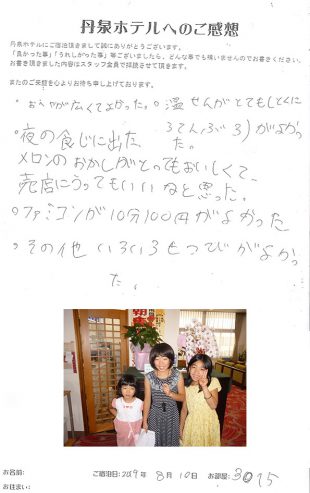 丹泉ホテルへのご感想
丹泉ホテルにご宿泊頂きまして誠にありがとうございます。
「良かった事」「うれしかった事」等ございましたら、どんな事でも構いませんのでお書きください。
お書き頂きました内容はスタッフ全員で拝読させて頂きます。
またのご来館を心よりお待ち申し上げております。
が広くてよかった。
せんがとてもしょくに
ろてんぶろ)がよかった。
夜の食じに出た、
メロンのおかしがとってもおいしくて、
売店にうってもいいなと思った。
ファミコンが10分100円がよかった
その他いろいろせつびがよかった。
お名前:
ご宿泊日:2009年 8月10日 お部屋: 3015
お住まい: